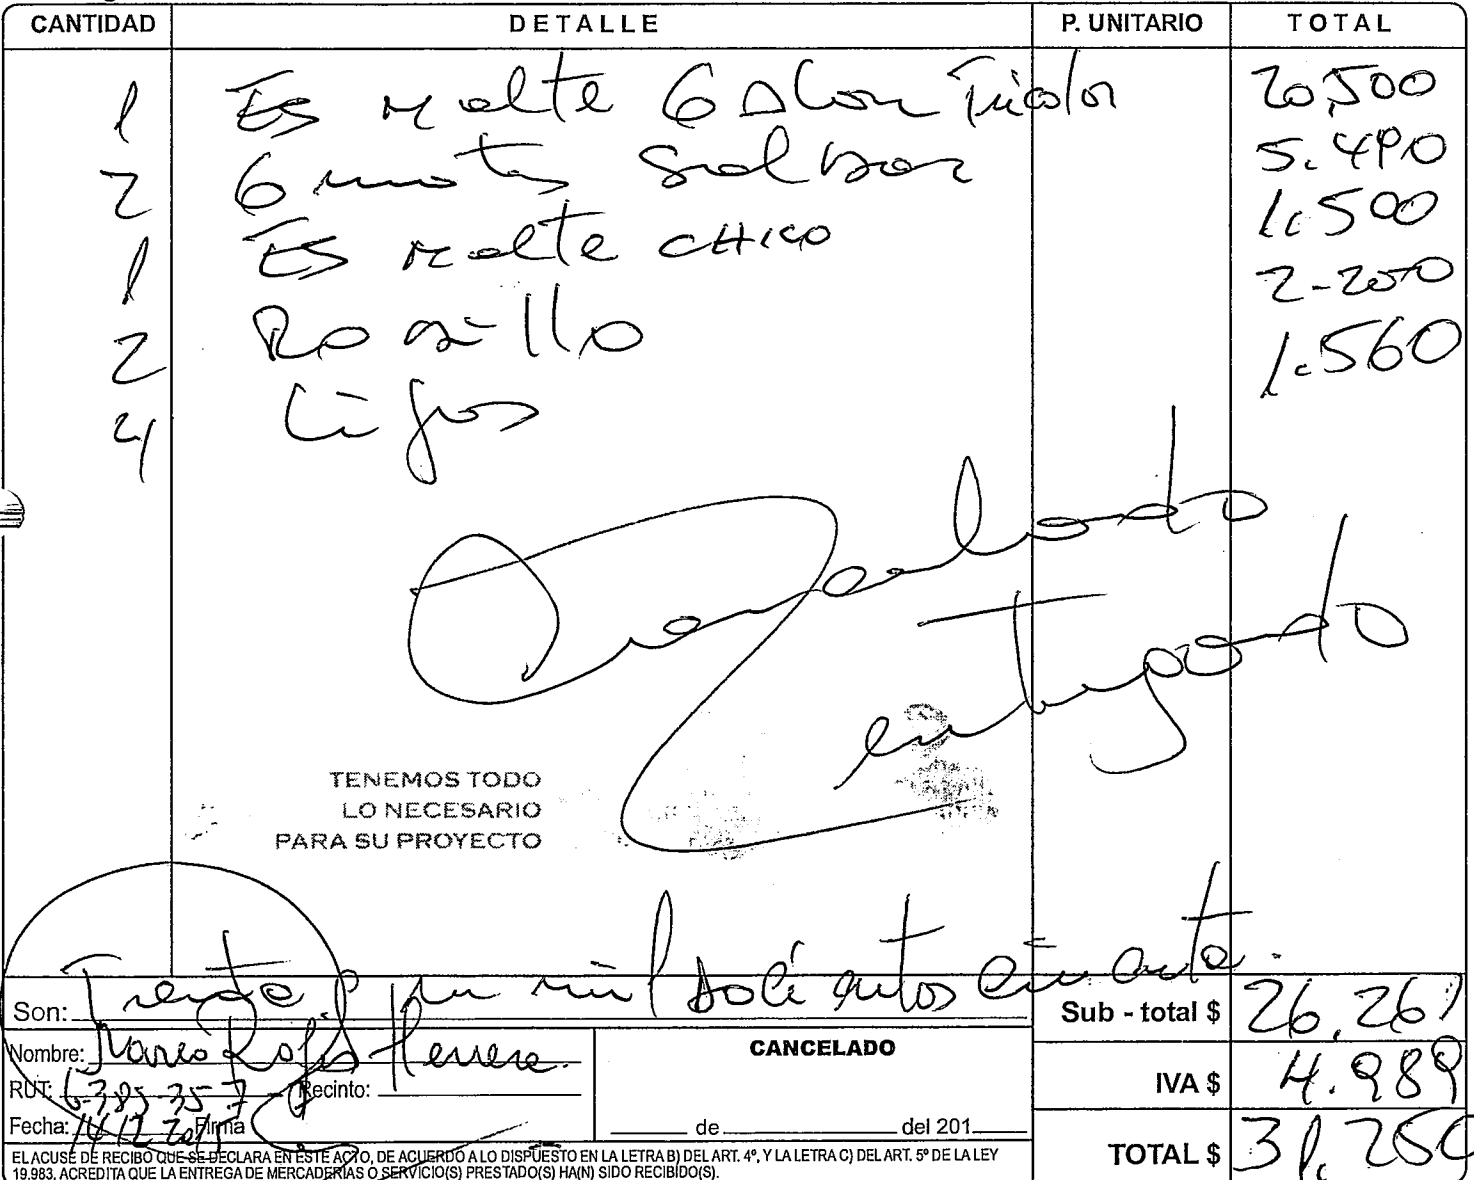 CANTIDAD DETALLE P. UNITARIO TOTAL
1 Esmalte Galon Tricolor 20,500
2 Guantes 5.490
1 Esmalte CHICO 1.500
2 Rodillo 2-200
4 Lijas 1.560
entregado
TENEMOS TODO
LO NECESARIO
PARA SU PROYECTO
Son: Treinta y un mil docientos cincuenta.
Sub - total $ 26.261
Nombre: Mario Rojas Herrera
CANCELADO
RUT: 6-385-35-7 Recinto:
IVA $ 4.989
Fecha: 14/12/2015 Firma
de del 201
TOTAL $ 31.250
EL ACUSE DE RECIBO QUE SE DECLARA EN ESTE ACTO, DE ACUERDO A LO DISPUESTO EN LA LETRA B) DEL ART. 4º, Y LA LETRA C) DEL ART. 5º DE LA LEY
19.983, ACREDITA QUE LA ENTREGA DE MERCADERÍAS O SERVICIO(S) PRESTADO(S) HA(N) SIDO RECIBIDO(S).